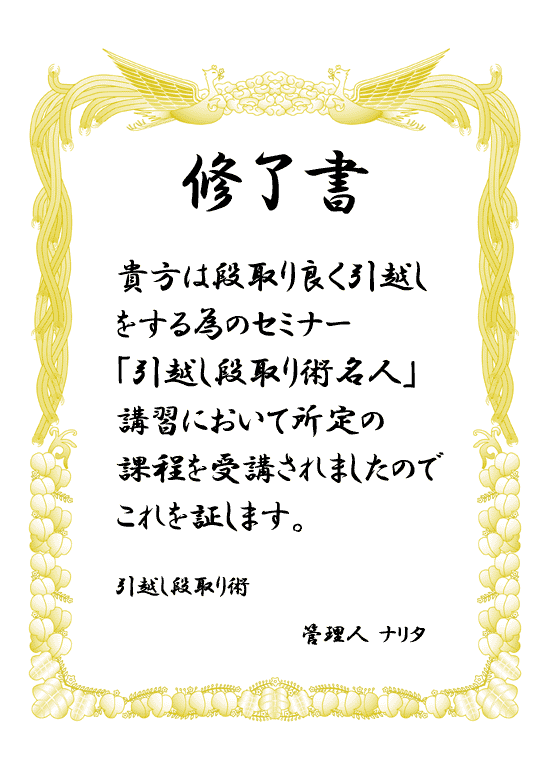 修了書
貴方は段取り良く引越し
をする為のセミナー
「引越し段取り術名人」
講習において所定の
課程を受講されましたので
これを証します。
引越し段取り術
管理人 ナリタ